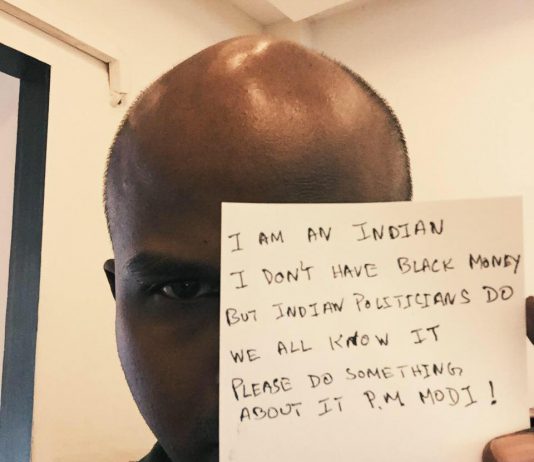 I AM AN INDIAN
I DON'T HAVE BLACK MONEY
BUT INDIAN POLITICIANS DO
WE ALL KNOW IT
PLEASE DO SOMETHING
ABOUT IT P.M. MODI!